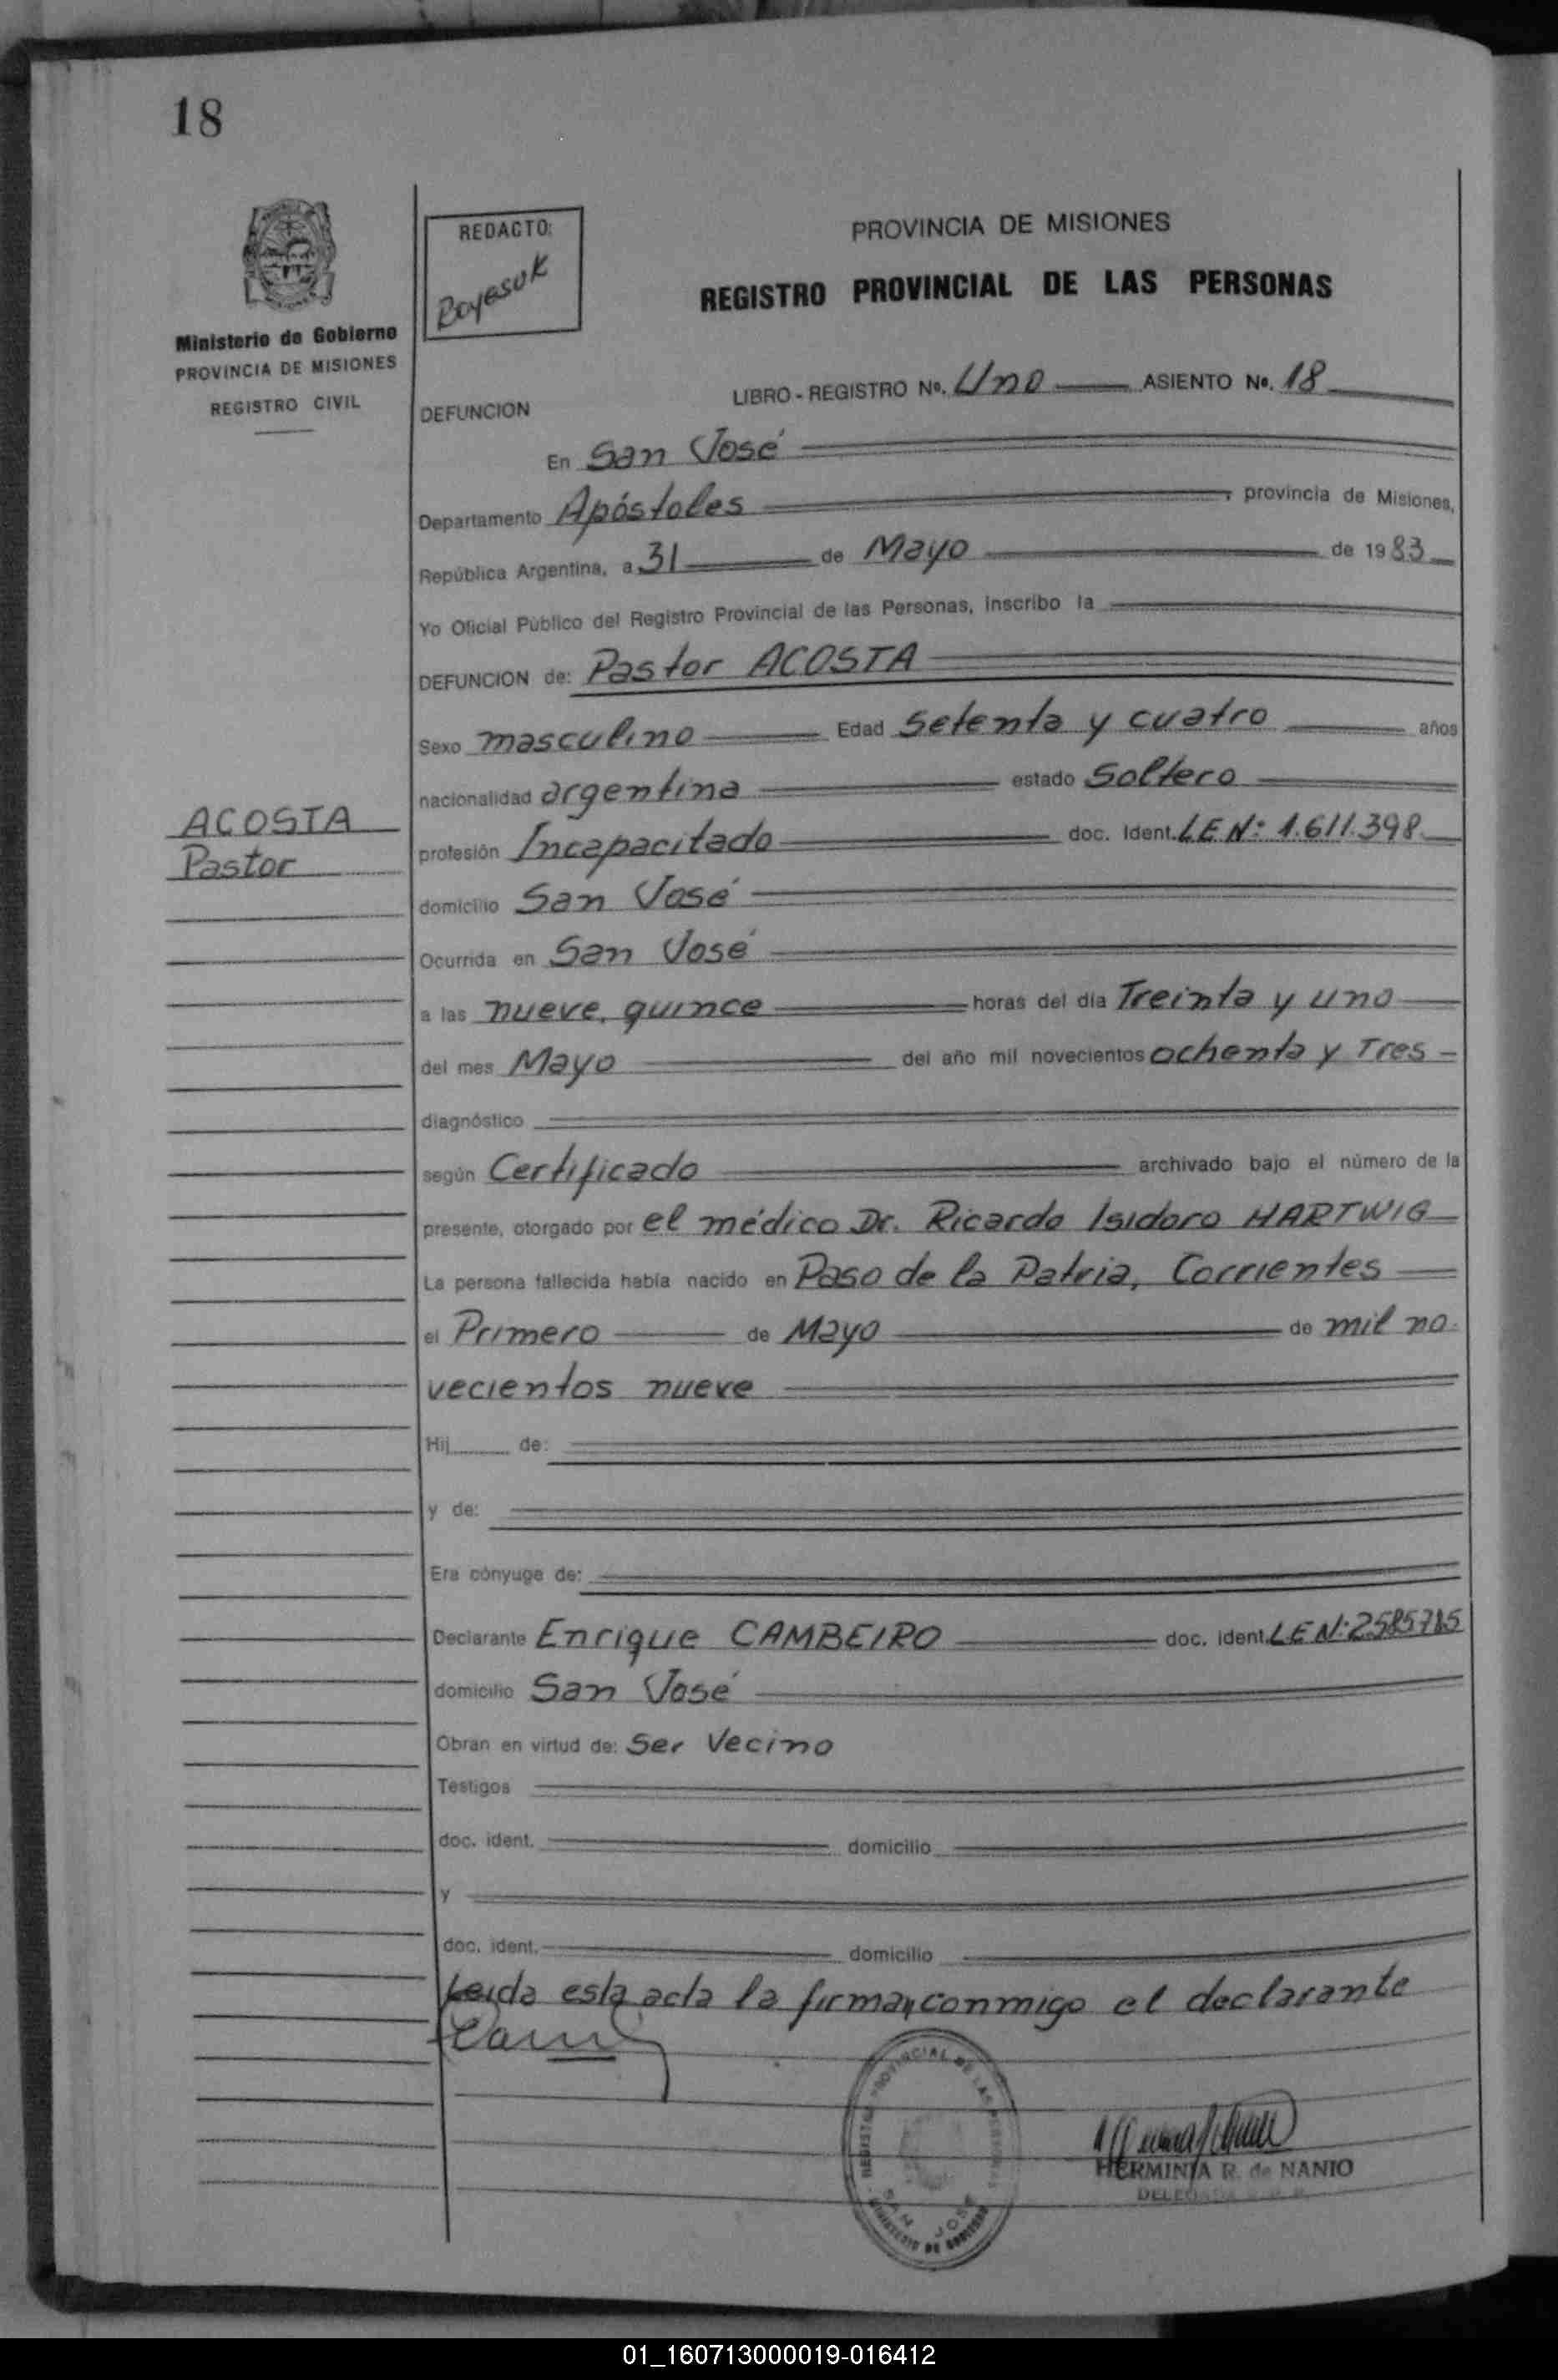 18
REDACTO:
Boyasuk
PROVINCIA DE MISIONES
REGISTRO PROVINCIAL DE LAS PERSONAS
Ministerio de Gobierno
PROVINCIA DE MISIONES
REGISTRO CIVIL
LIBRO - REGISTRO Nº. Uno ASIENTO Nº. 18
DEFUNCION
En San José
Departamento Apóstoles, provincia de Misiones,
República Argentina, a 31 de Mayo de 1983
Yo Oficial Público del Registro Provincial de las Personas, inscribo la
DEFUNCION de: Pastor ACOSTA
Sexo masculino Edad Setenta y cuatro años
nacionalidad argentina estado Soltero
ACOSTA
Pastor
profesión Incapacitado doc. Ident. L.E.Nº: 1.611.398
domicilio San José
Ocurrida en San José
a las nueve, quince horas del día Treinta y uno
del mes Mayo del año mil novecientos ochenta y Tres
diagnóstico
según Certificado archivado bajo el número de la
presente, otorgado por el médico Dr. Ricardo Isidoro HARTWIG
La persona fallecida había nacido en Paso de la Patria, Corrientes
el Primero de Mayo de mil no-
vecientos nueve
Hij de:
y de:
Era cónyuge de:
Declarante Enrique CAMBEIRO doc. ident. L E N:
domicilio San José
Obran en virtud de: Ser Vecino
Testigos
doc. ident. domicilio
y
doc. ident. domicilio
Leida esta acta la firman conmigo el declarante
REGISTRO PROVINCIAL DE LAS PERSONAS
SAN JOSE
MINISTERIO DE GOBIERNO
HERMINIA R. de NANIO
01_160713000019-016412